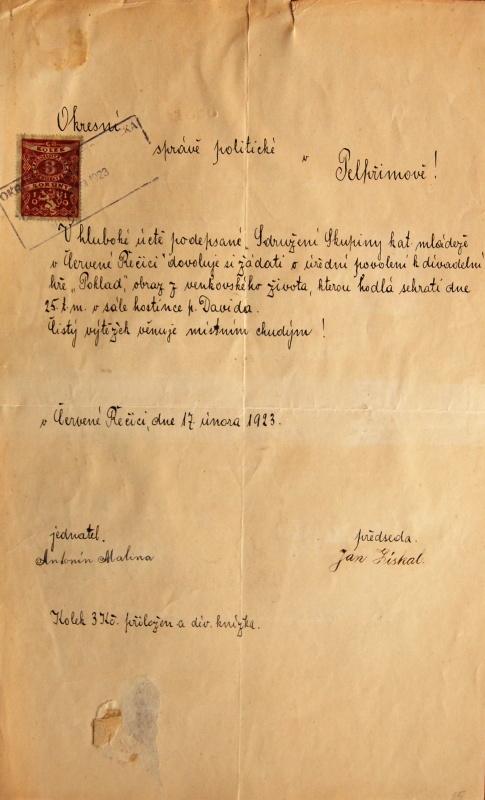 Okresní
správě politické v Pelhřimově!
KOLEK
3
KORUNY
1923
V hluboké úctě podepsané „Sdružení Skupiny kat. mládeže
v Červené Řečici" dovoluje si žádati o úřední povolení k divadelní
hře „Poklad", obraz z venkovského života, kterou hodlá sehrati dne
25. t. m. v sále hostince p. Davida.
Čistý výtěžek věnuje místním chudým!
v Červené Řečici, dne 17 února 1923.
jednatel. předseda.
Antonín Malina Jan Získal.
Kolek 3 Kč. přiložen a div. knížka.